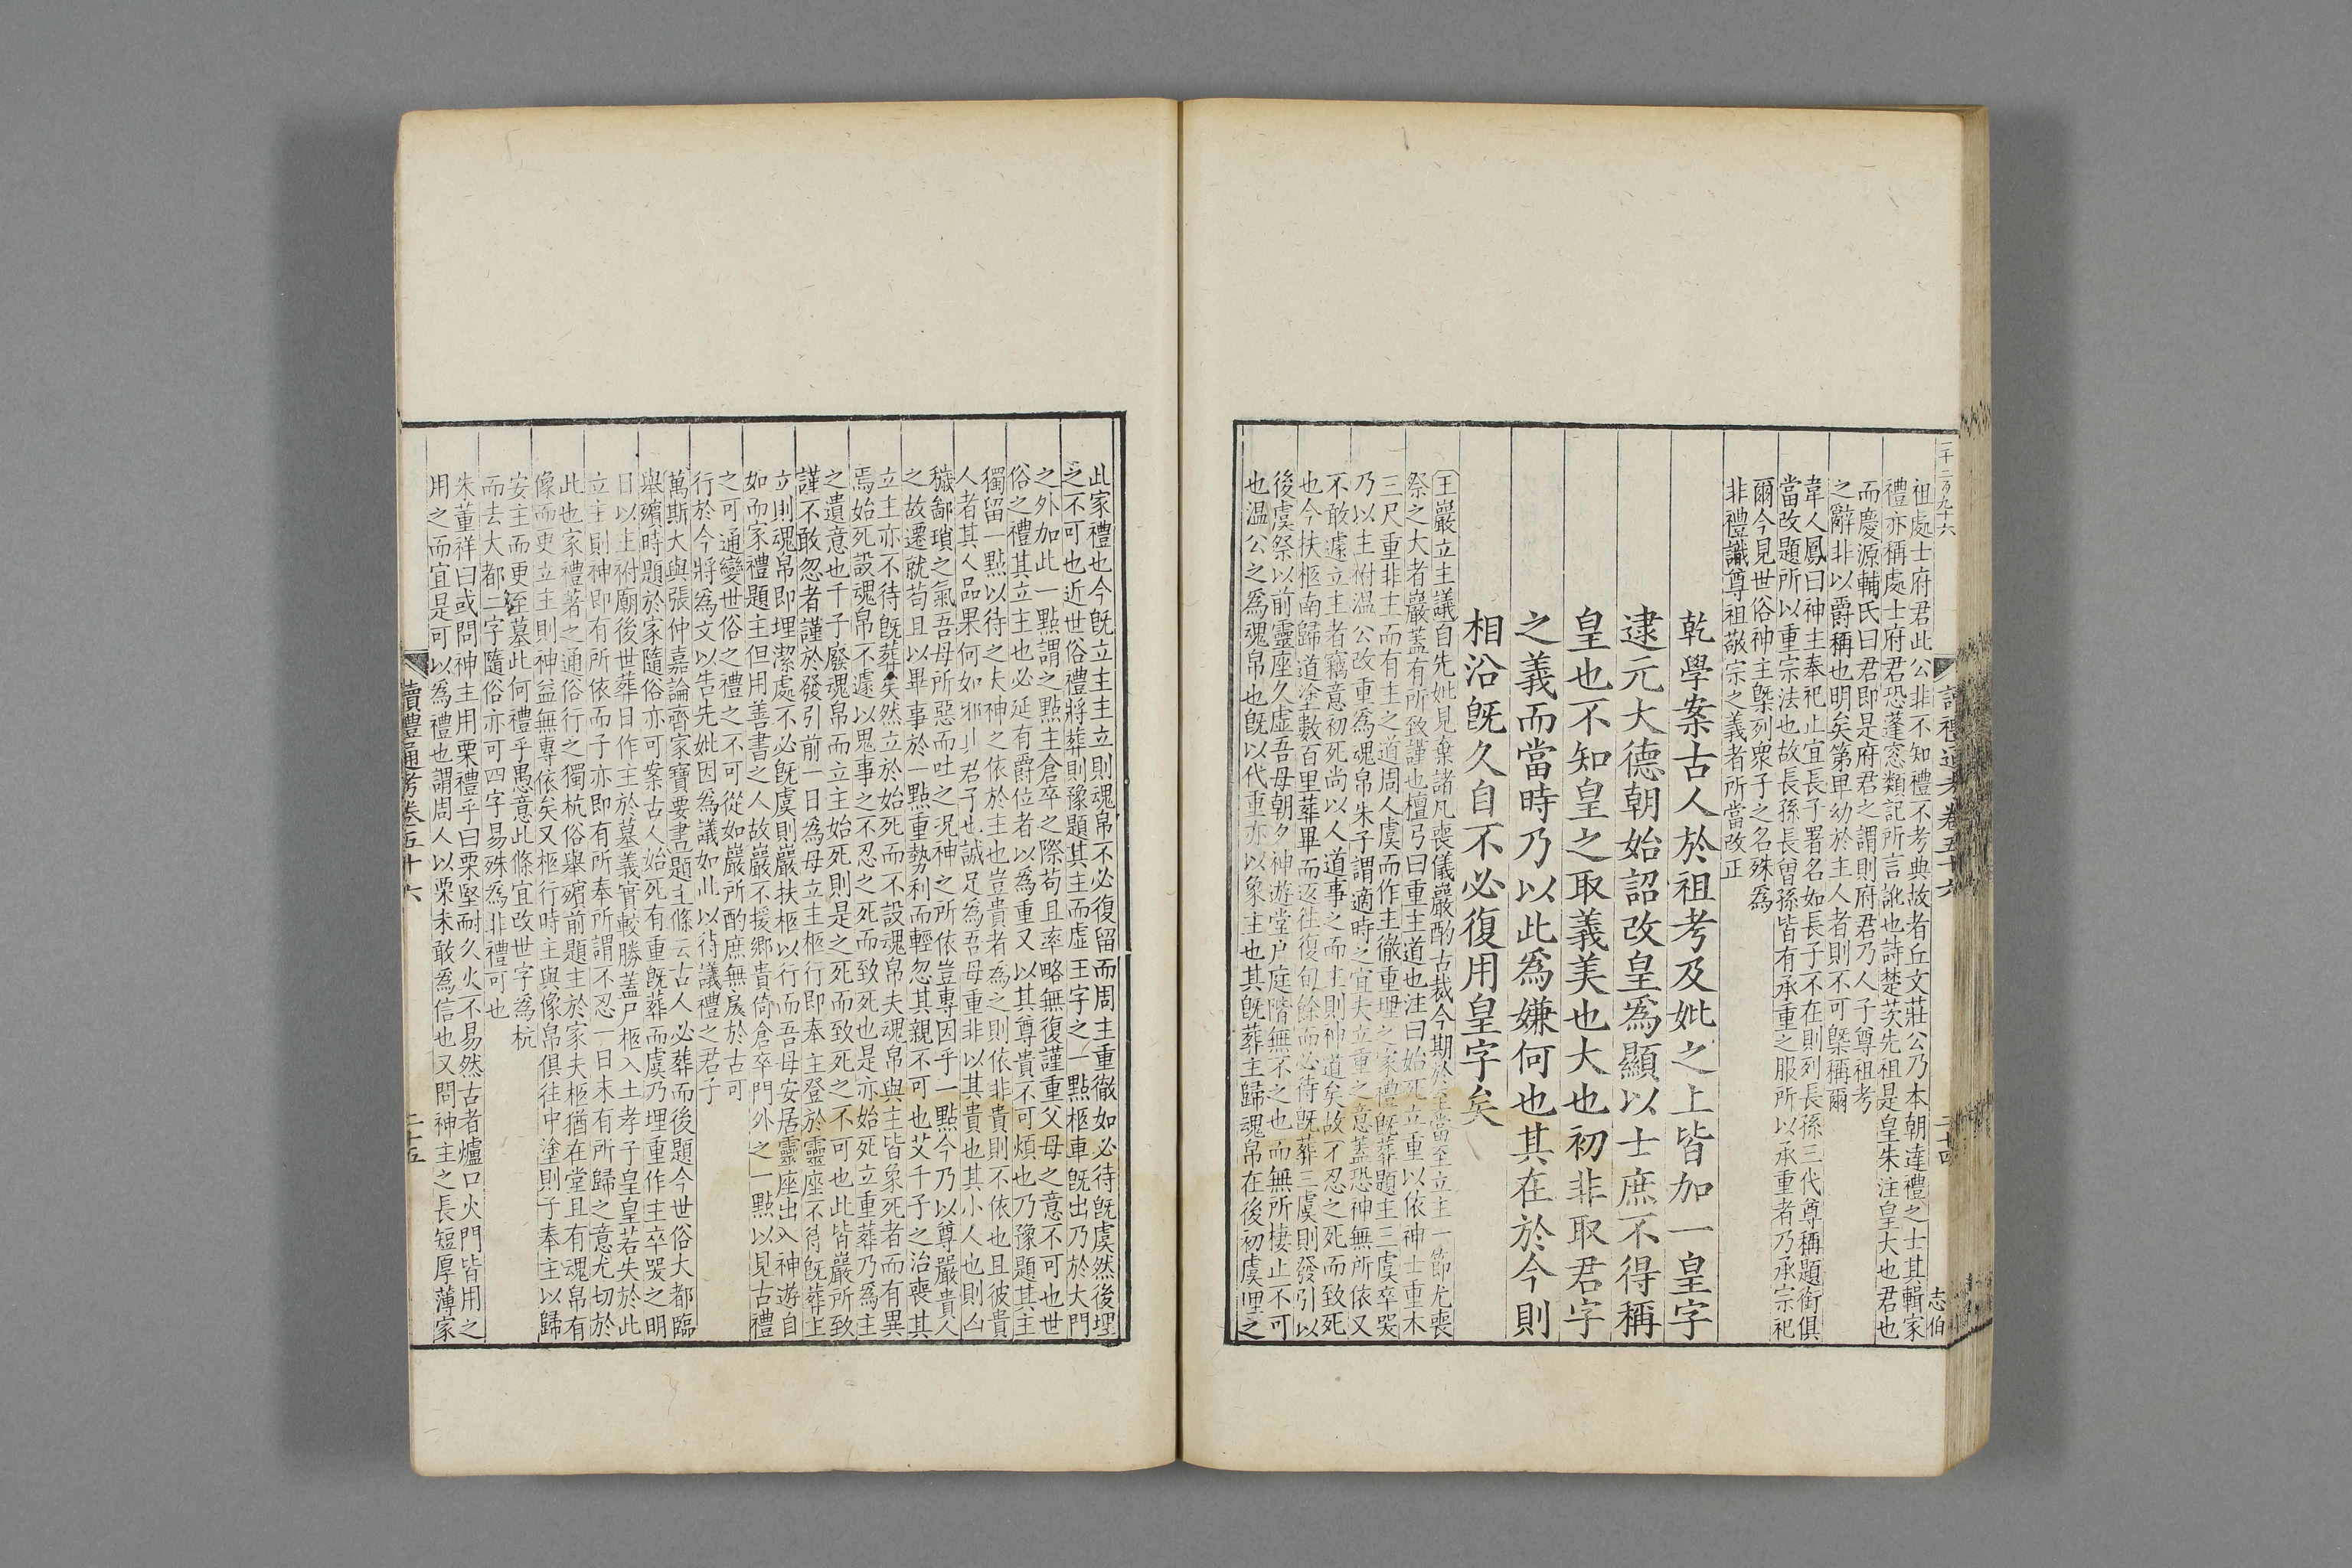 二千二百九十六
讀禮通考卷五十六
二十四
志伯
祖處士府君此公非不知禮不考典故者丘文莊公乃本朝達禮之士其輯家
禮亦稱處士府君恐蓬窓類記所言訛也詩楚茨先祖是皇朱注皇大也君也
而慶源輔氏曰君即是府君之謂則府君乃人子尊祖考
之辭非以爵稱也明矣第卑幼於主人者則不可槩稱爾
韋人鳳曰神主奉祀止宜長子署名如長子不在則列長孫三代尊稱題銜俱
當改題所以重宗法也故長孫長曾孫皆有承重之服所以承重者乃承宗祀
爾今見世俗神主槩列衆子之名殊爲
非禮識尊祖敬宗之義者所當改正
乾學案古人於祖考及妣之上皆加一皇字
逮元大德朝始詔改皇爲顯以士庶不得稱
皇也不知皇之取義美也大也初非取君字
之義而當時乃以此爲嫌何也其在於今則
相沿旣久自不必復用皇字矣
王巖立主議自先妣見棄諸凡喪儀巖酌古裁今期於至當至立主一節尤喪
祭之大者巖蓋有所致謹也檀弓曰重主道也注曰始死立重以依神士重木
三尺重非主而有主之道周人虞而作主徹重埋之家禮旣葬題主三虞卒哭
乃以主祔温公改重爲魂帛朱子謂適時之宜夫立重之意蓋恐神無所依又
不敢遽立主者竊意初死尚以人道事之而主則神道矣故不忍之死而致死
也今扶柩南歸道塗數百里葬畢而返往復旬餘而必待旣葬三虞則發引以
後虞祭以前靈座久虛吾母朝夕神遊堂户庭階無不之也而無所棲止不可
也温公之爲魂帛也旣以代重亦以象主也其旣葬主歸魂帛在後初虞埋之
此家禮也今旣立主主立則魂帛不必復留而周主重徹如必待旣虞然後埋
之不可也近世俗禮將葬則豫題其主而虛王字之一點柩車旣出乃於大門
之外加此一點謂之點主倉卒之際苟且率略無復謹重父母之意不可也世
俗之禮其立主也必延有爵位者以爲重又以其尊貴不可煩也乃豫題其主
獨留一點以待之夫神之依於主也豈貴者爲之則依非貴則不依也且彼貴
人者其人品果何如邪丨君子也誠足爲吾母重非以其貴也其小人也則凶
穢鄙瑣之氣吾母所惡而吐之况神之所依豈專因乎一點今乃以尊嚴貴人
之故遷就苟且以畢事於一點重勢利而輕忽其親不可也艾千子之治喪其
立主亦不待旣葬矣然立於始死而不設魂帛夫魂帛與主皆象死者而有異
焉始死設魂帛不遽以鬼事之不忍之死而致死也是亦始死立重葬乃爲主
之遺意也千子廢魂帛而立主始死則是之死而致死之不可也此皆巖所致
謹不敢忽者謹於發引前一日爲母立主柩行即奉主登於靈座不待旣葬主
立則魂帛即埋潔處不必旣虞則巖扶柩以行而吾母安居靈座出入神遊自
如而家禮題主但用善書之人故巖不援鄉貴倚倉卒門外之一點以見古禮
之可通變世俗之禮之不可從如巖所酌庶無戾於古可
行於今將爲文以告先妣因爲議如此以待議禮之君子
萬斯大與張仲嘉論齊家寶要書題主條云古人必葬而後題今世俗大都臨
舉殯時題於家隨俗亦可案古人始死有重旣葬而虞乃埋重作主卒哭之明
日以主祔廟後世葬日作主於墓義實較勝蓋尸柩入土孝子皇皇若失於此
立主則神即有所依而子亦即有所奉所謂不忍一日末有所歸之意尤切於
此也家禮著之通俗行之獨杭俗舉殯前題主於家夫柩猶在堂且有魂帛有
像而更立主則神益無專依矣又柩行時主與像帛俱往中塗則子奉主以歸
安主而更至墓此何禮乎愚意此條宜改世字爲杭
而去大都二字隨俗亦可四字易殊爲非禮可也
朱董祥曰或問神主用栗禮乎曰栗堅耐久火不易然古者爐口火門皆用之
用之而宜是可以爲禮也謂周人以栗未敢爲信也又問神主之長短厚薄家
讀禮通考卷五十六
二十五